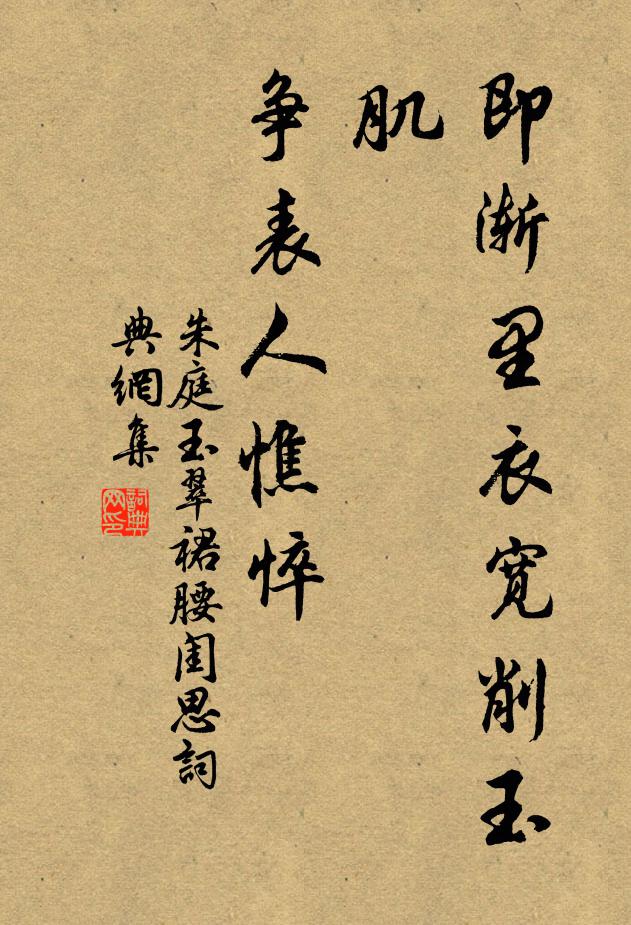 即渐里衣宽削玉
肌
争表人憔悴
朱庭玉翠裙腰闺思詞
典網集
詞典網印